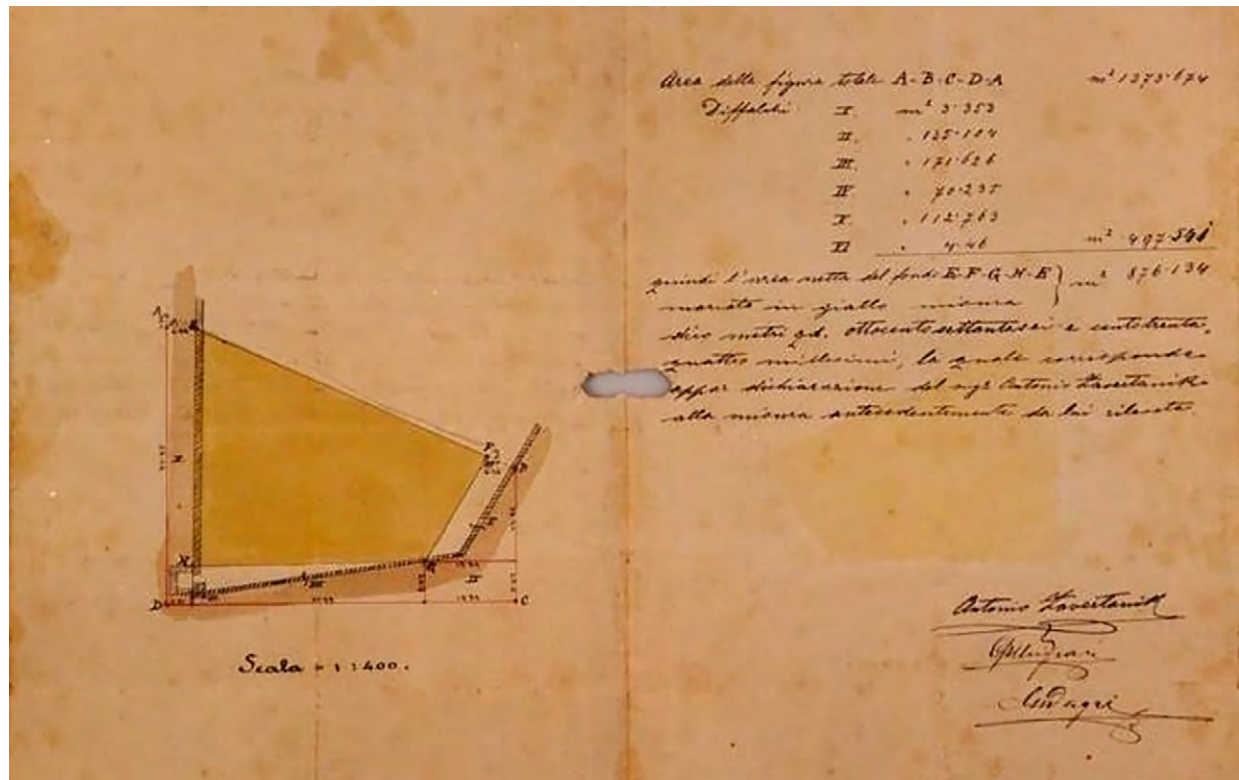 Area della figura totale A-B-C-D-A m² 1373·674
Diffalchi I. m² 3·353
II. " 135·104
III. " 171·626
IV " 70·235
V. " 112·763
VI " 4·46 m² 497·541
quindi l'area netta del fondo E-F-G-H-E } m² 876·134
marcato in giallo misura
dico metri qd. ottocentosettantasei e centotrenta-
quattro millesimi, la quale corrisponde
appar dichiarazione del sigr Antonio Zavertanik
alla misura antecedentemente da lui rilevata.
D
C
II
III
Scala = 1:400.
Antonio Zavertanik